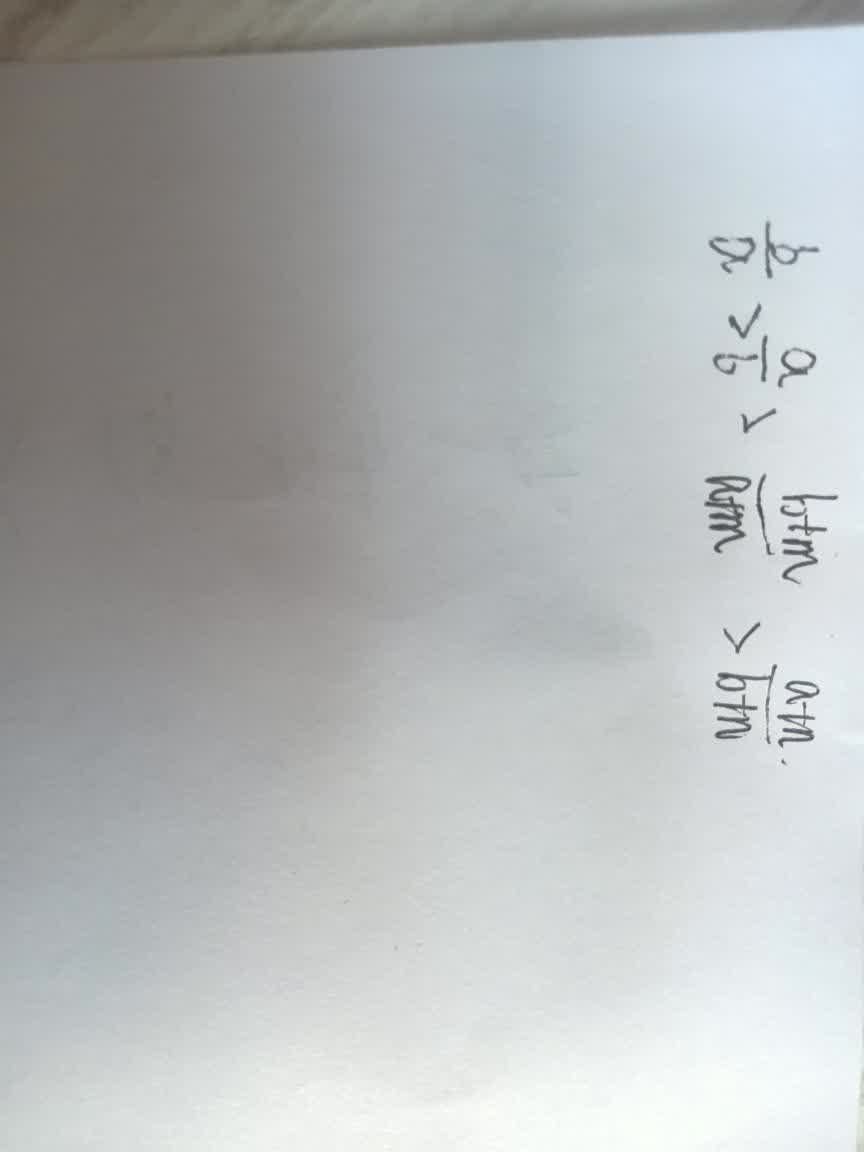 b/a < a/b < b+m/a+m < a+n/b+n